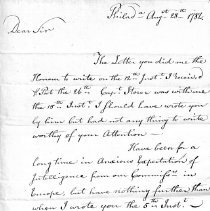 Philada. Augt. 28th. 1782,
Dear Sir
The Letter you did me the
Honour to write on the 12th. Inst. I received
the 26th. Yours was
the 15th. Inst. I should have wrote you
by him but had not any thing to write
worthy of your Attention —
Have been for a
long time in Anxious Expectation of
Intelligence from our Commissrs. in
Europe, but have nothing further than
when I wrote you the 5th. Inst. —